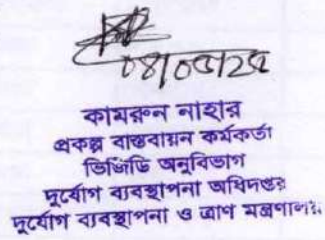 কামরুন নাহার
প্রকল্প বাস্তবায়ন কর্মকর্তা
ভিজিডি অনুবিভাগ
দুর্যোগ ব্যবস্থাপনা অধিদপ্তর
দুর্যোগ ব্যবস্থাপনা ও ত্রাণ মন্ত্রণালয়।